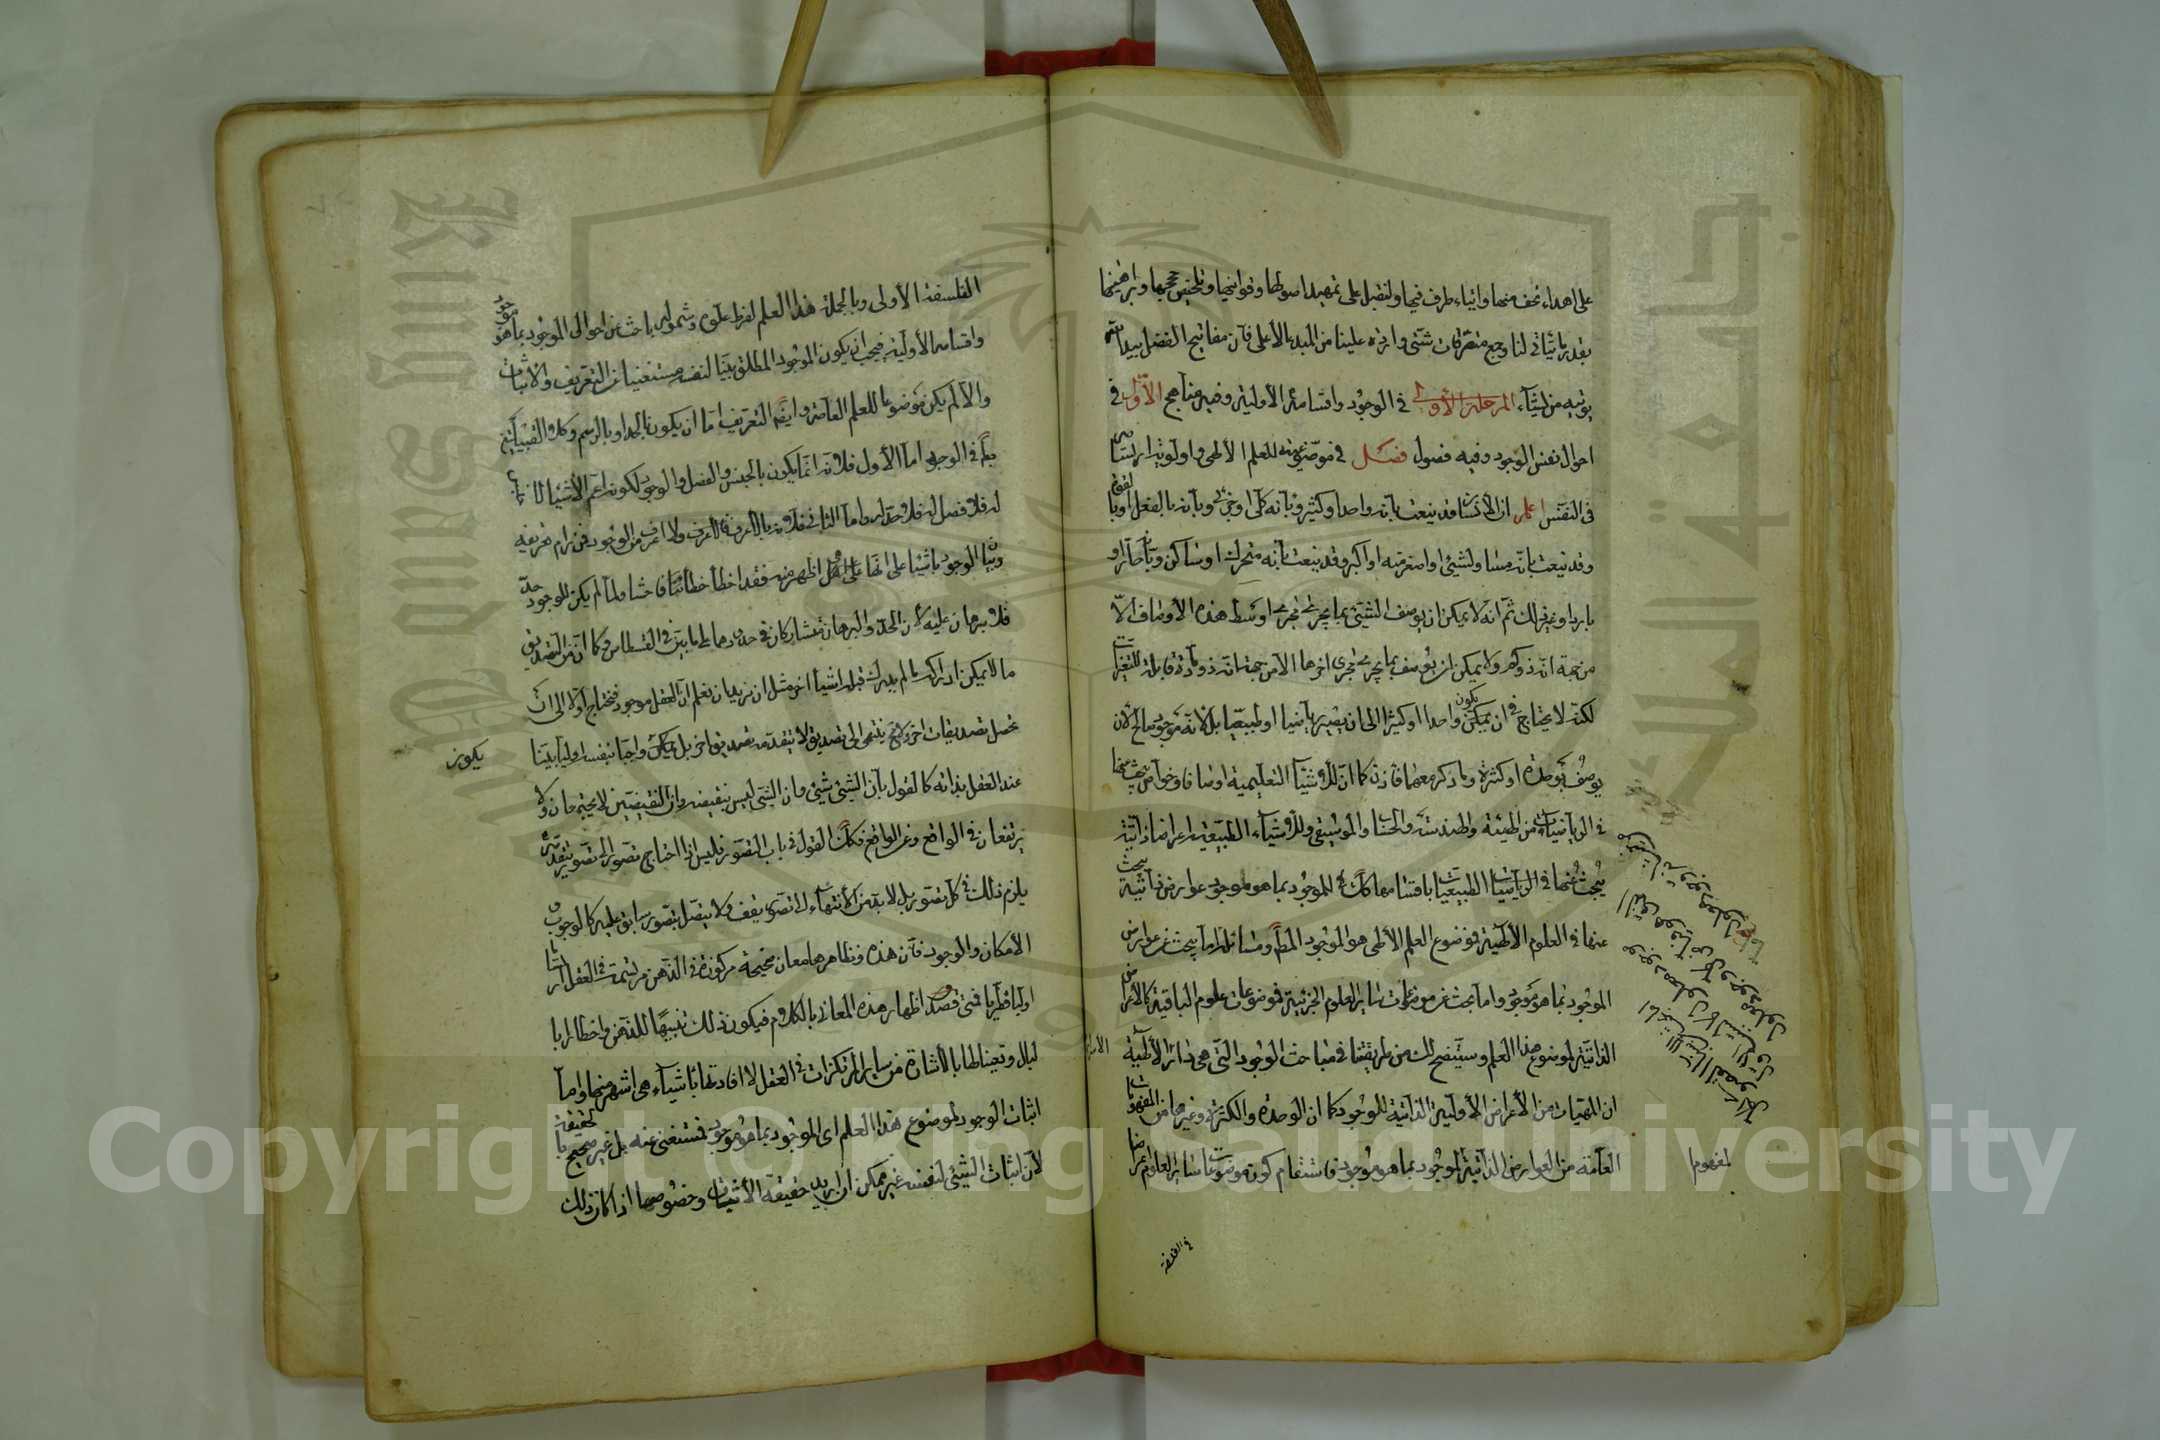 على اهداء تحف منها وايتاء طرف فيها ولنقبل على تمهيد اصولها وقوانينها وتلخيص حججها وبراهينها
بقدر ما يتأتى لنا وجمع متفرقات شتى واردة علينا من المبدء الأعلى فان مفاتيح الفضل بيد الله
يؤتيه من يشاء المرحلة الأولى في الوجود واقسامه الأولية وفيه مناهج الأول في
احوال نفس الوجود وفيه فصول فصل في موضوعيته للعلم الألهى واولوية ارتسامه
في النفس اعلم ان الأنسان قد ينعت بانه واحد او كثير وبانه كلى او جزئى وبانه بالفعل او بالقوة
وقد ينعت بانه مساو لشيئ او اصغر منه او اكبر وقد ينعت بأنه متحرك او ساكن وبأنه حار او
بارد او غير ذلك ثم انه لا يمكن ان يوصف الشيئ بما يجرى مجرى اوسط هذه الأوصاف الا
من جهة انه ذو كم ولا يمكن ان يوصف بما يجرى مجرى اخرها الا من جهة انه ذو مادة قابلة للتغيرات
لكنه لا يحتاج في ان يكون واحدا او كثيرا الى ان يصير رياضيا او طبيعيا بل لأنه موجود صالح لأن
يوصف بوحدة او كثرة وما ذكر معهما فاذن كما ان للأشياء التعليمية اوصافا وخواص يبحث عنها
في الرياضيات من الهيئة والهندسة والحساب والموسيقى وللأشياء الطبيعية اعراضا ذاتية
يبحث عنها في الطبيعيات باقسامها كذلك للموجود بما هو موجود عوارض ذاتية يبحث
عنها في العلوم الألهية فموضوع العلم الألهى هو الموجود المطلق ومسائله اما بحث عن عوارض
الموجود بما هو موجود واما بحث عن موضوعات سائر العلوم الجزئية فموضوعات علوم الباقية كالأعراض
الذاتية لموضوع هذا العلم وسيتضح لك من طريقتنا في مباحث الوجود التى هي دائرة الألهية
ان المهيات من الأعراض الأولية الذاتية للموجود كما ان الوحدة والكثرة وغيرهما من المفهومات
العامة من العوارض الذاتية للموجود بما هو موجود فاستقام كون موضوعات سائر العلوم اعراضا
لمفهوم
في الفلسفة
الفلسفة الأولى وبالجملة هذا العلم لفرط علوه وشموله باحث عن احوال الموجود بما هو موجود
واقسامه الأولية فيجب ان يكون الموجود المطلق بينا لنفسه مستغنيا عن التعريف والأثبات
والا لم يكن موضوعا للعلم العام وايضا التعريف اما ان يكون بالحد او بالرسم وكلا القسمين
باطل في الوجود اما الأول فلأنه انما يكون بالجنس والفصل والوجود لكونه اعم الأشياء لا جنس
له فلا فصل له فلا حد له واما الثانى فلأنه بالأعرف ولا اعرف من الوجود فمن رام تعريفه
وبيان الوجود باشياء على انها اظهر منه فقد اخطأ خطاء فاحشا ولما لم يكن للوجود حد
فلا برهان عليه لأن الحد والبرهان متشاركان في حدودهما على ما بين في القسطاس وكما ان من التصديق
ما لا يمكن ادراكه ما لم يدرك قبله اشيأ اخر مثل ان نريد ان نعلم ان العقل موجود فنحتاج اولا الى ان
نحصل تصديقات اخر ولا محالة ينتهى الى تصديق لا يتقدمه تصديق اخر بل يكون واجبا بنفسه اوليا بينا
يكون
عند العقل بذاته كالقول بأن الشيئ شيئ وان الشيئ ليس بنقيضه وان النقيضين لا يجتمعان ولا
يرتفعان في الواقع وعن الواقع فكذلك القول في باب التصور فليس اذا احتاج تصور الى تصور يتقدمه
يلزم ذلك في كل تصور بل لا بد من الأنتهاء الى تصور يقف ولا يتصل بتصور سابق عليه كالوجوب و
الأمكان والوجود فان هذه ونظائرها معان صحيحة مركوزة في الذهن مرتسمة في العقل ارتساما
اوليا فطريا فمتى قصد اظهار هذه المعانى بالكلام فيكون ذلك تنبيها للذهن واخطارا با
لبال وتعيينا لها بالأشارة من سائر المرتكزات في العقل لا افادتها بأشياء هي اشهر منها واما
اثبات الوجود لموضوع هذا العلم اى الموجود بما هو موجود فمستغنى عنه بل غير صحيح بالحقيقة
لأن اثبات الشيئ لنفسه غير ممكن ان اريد به حقيقة الأثبات وخصوصا اذا كان ذلك